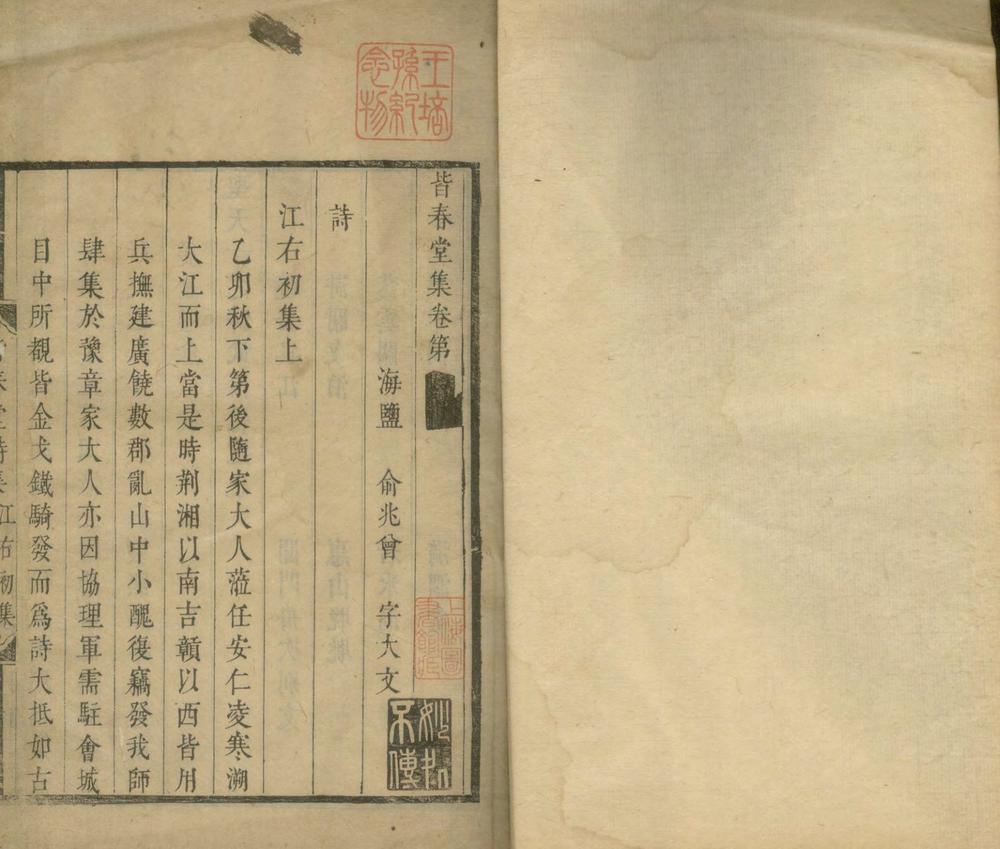 皆春堂集卷第
海鹽 俞兆曾 字大文
詩
江右初集上
乙卯秋下第後隨家大人蒞任安仁凌寒溯
大江而上當是時荆湘以南吉贛以西皆用
兵撫建廣饒數郡亂山中小醜復竊發我師
肆集於豫章家大人亦因協理軍需駐會城
目中所覩皆金戈鐵騎發而爲詩大抵如古
王培孫紀念物
上海圖書館藏